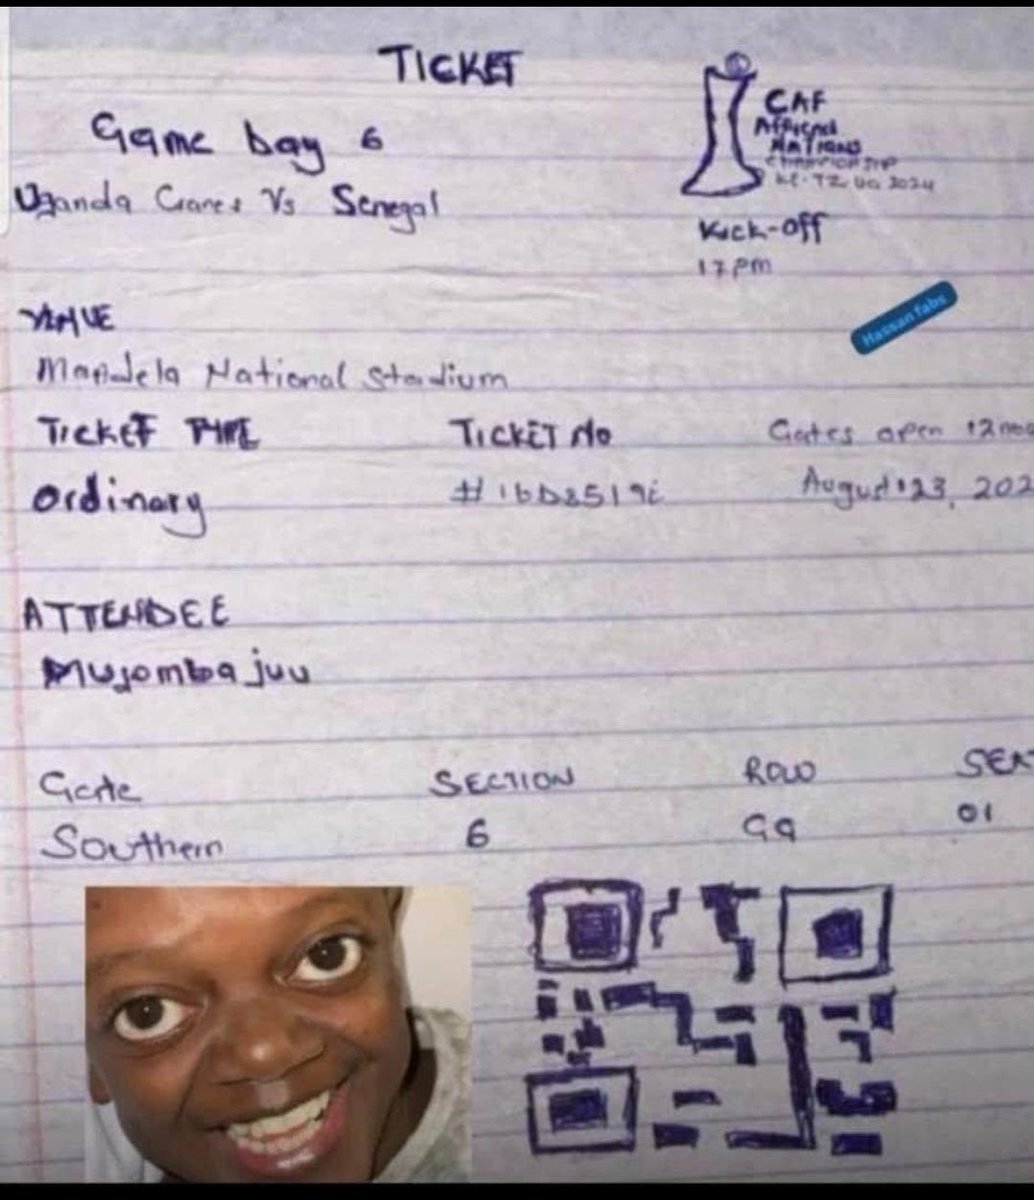 TICKET
Game Day 6
Uganda Cranes Vs Senegal
CAF
African
NATIONS
CHAMPIONSHIP
KE-TZ-UG 2024
Kick-off
17 pm
Hassan fabs
VENUE
Mandela National Stadium
TICKET TYPE TICKET No Gates open 12noo
Ordinary August 23, 202
ATTENDEE
Mujomba juu
Gate SECTION ROW SEAT
Southern 6 01